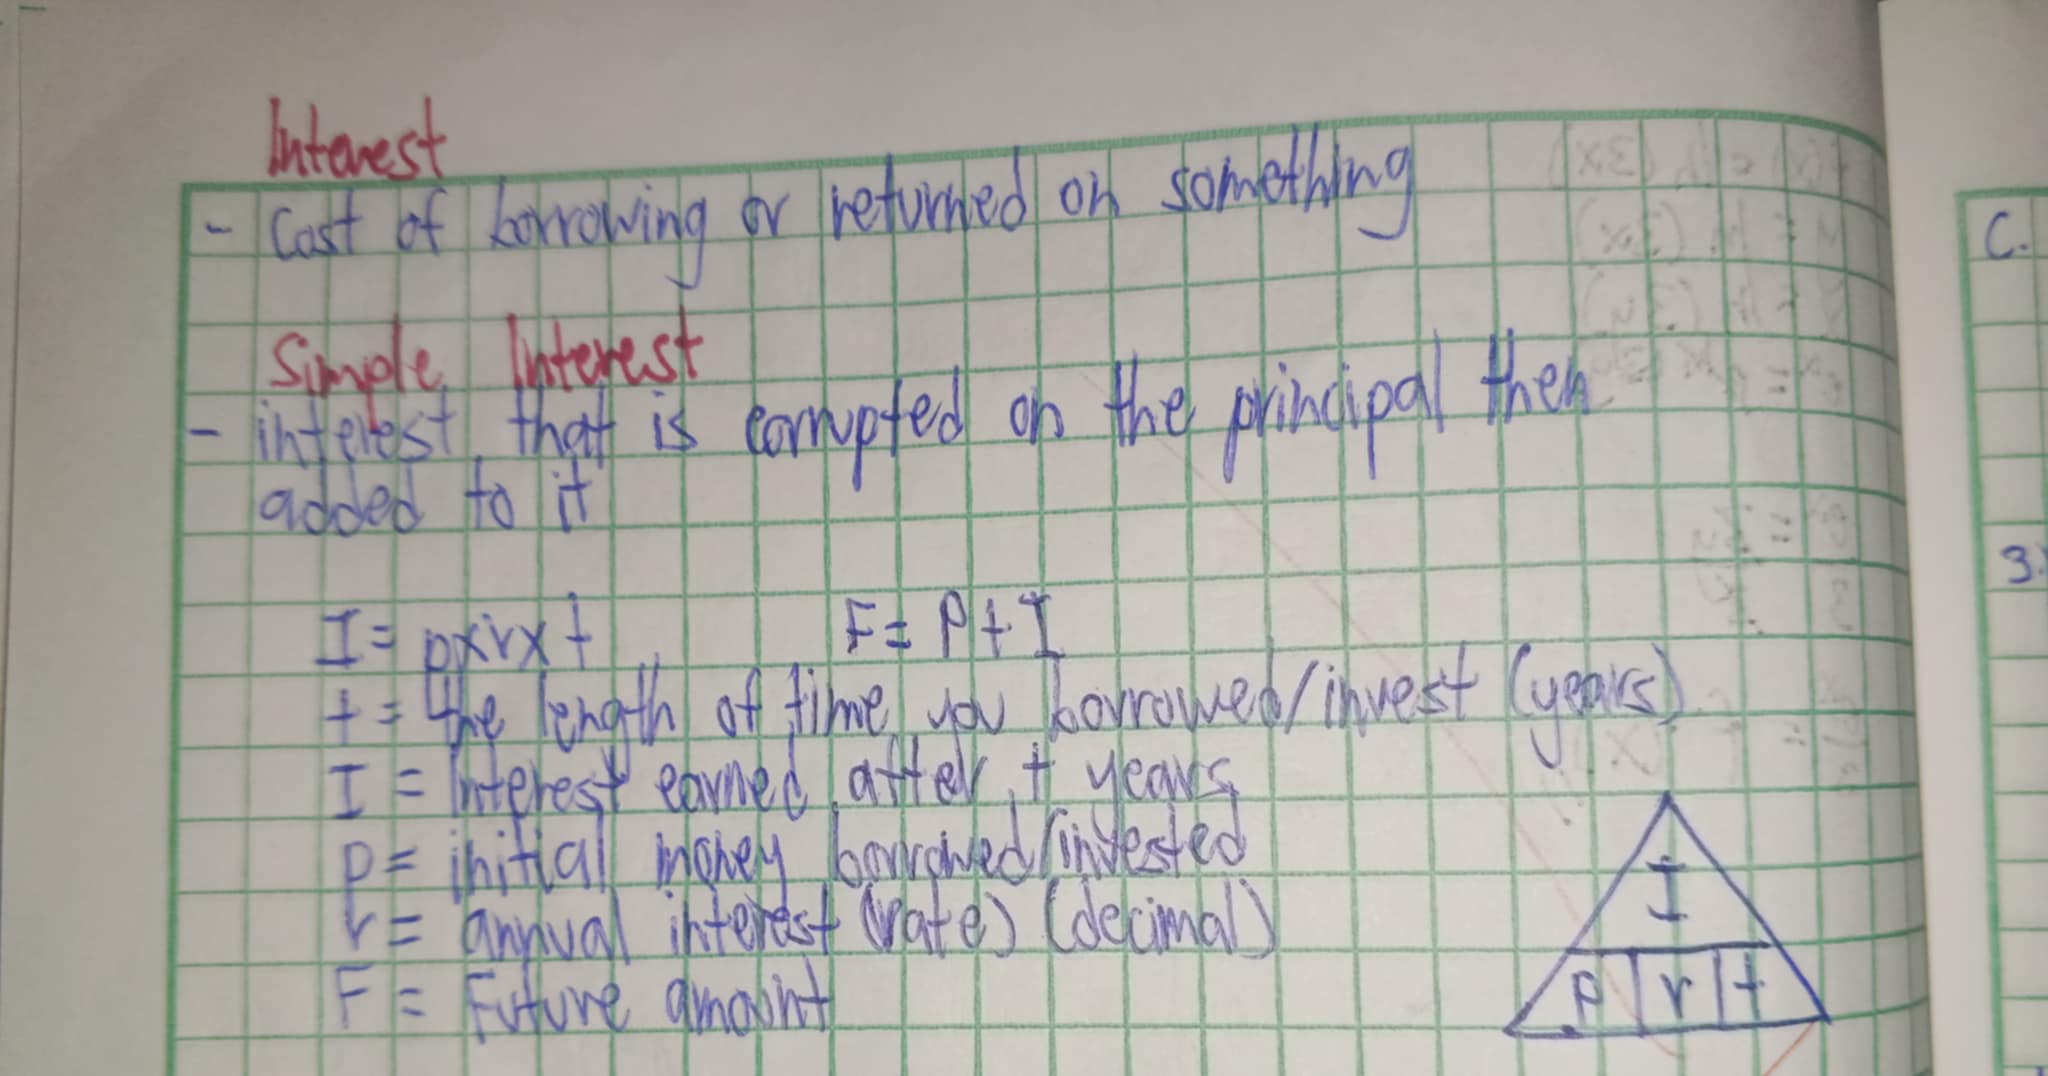 Interest
- Cost of borrowing or returned on something
Simple Interest
- interest that is corrupted on the principal then
added to it
I = pxrxt
F = P + I
t = the length of time you borrowed/invest (years)
I = Interest earned after t years
P = initial money borrowed/invested
r = annual interest (rate) (decimal)
F = Future amount
I
P r t
C.
3.